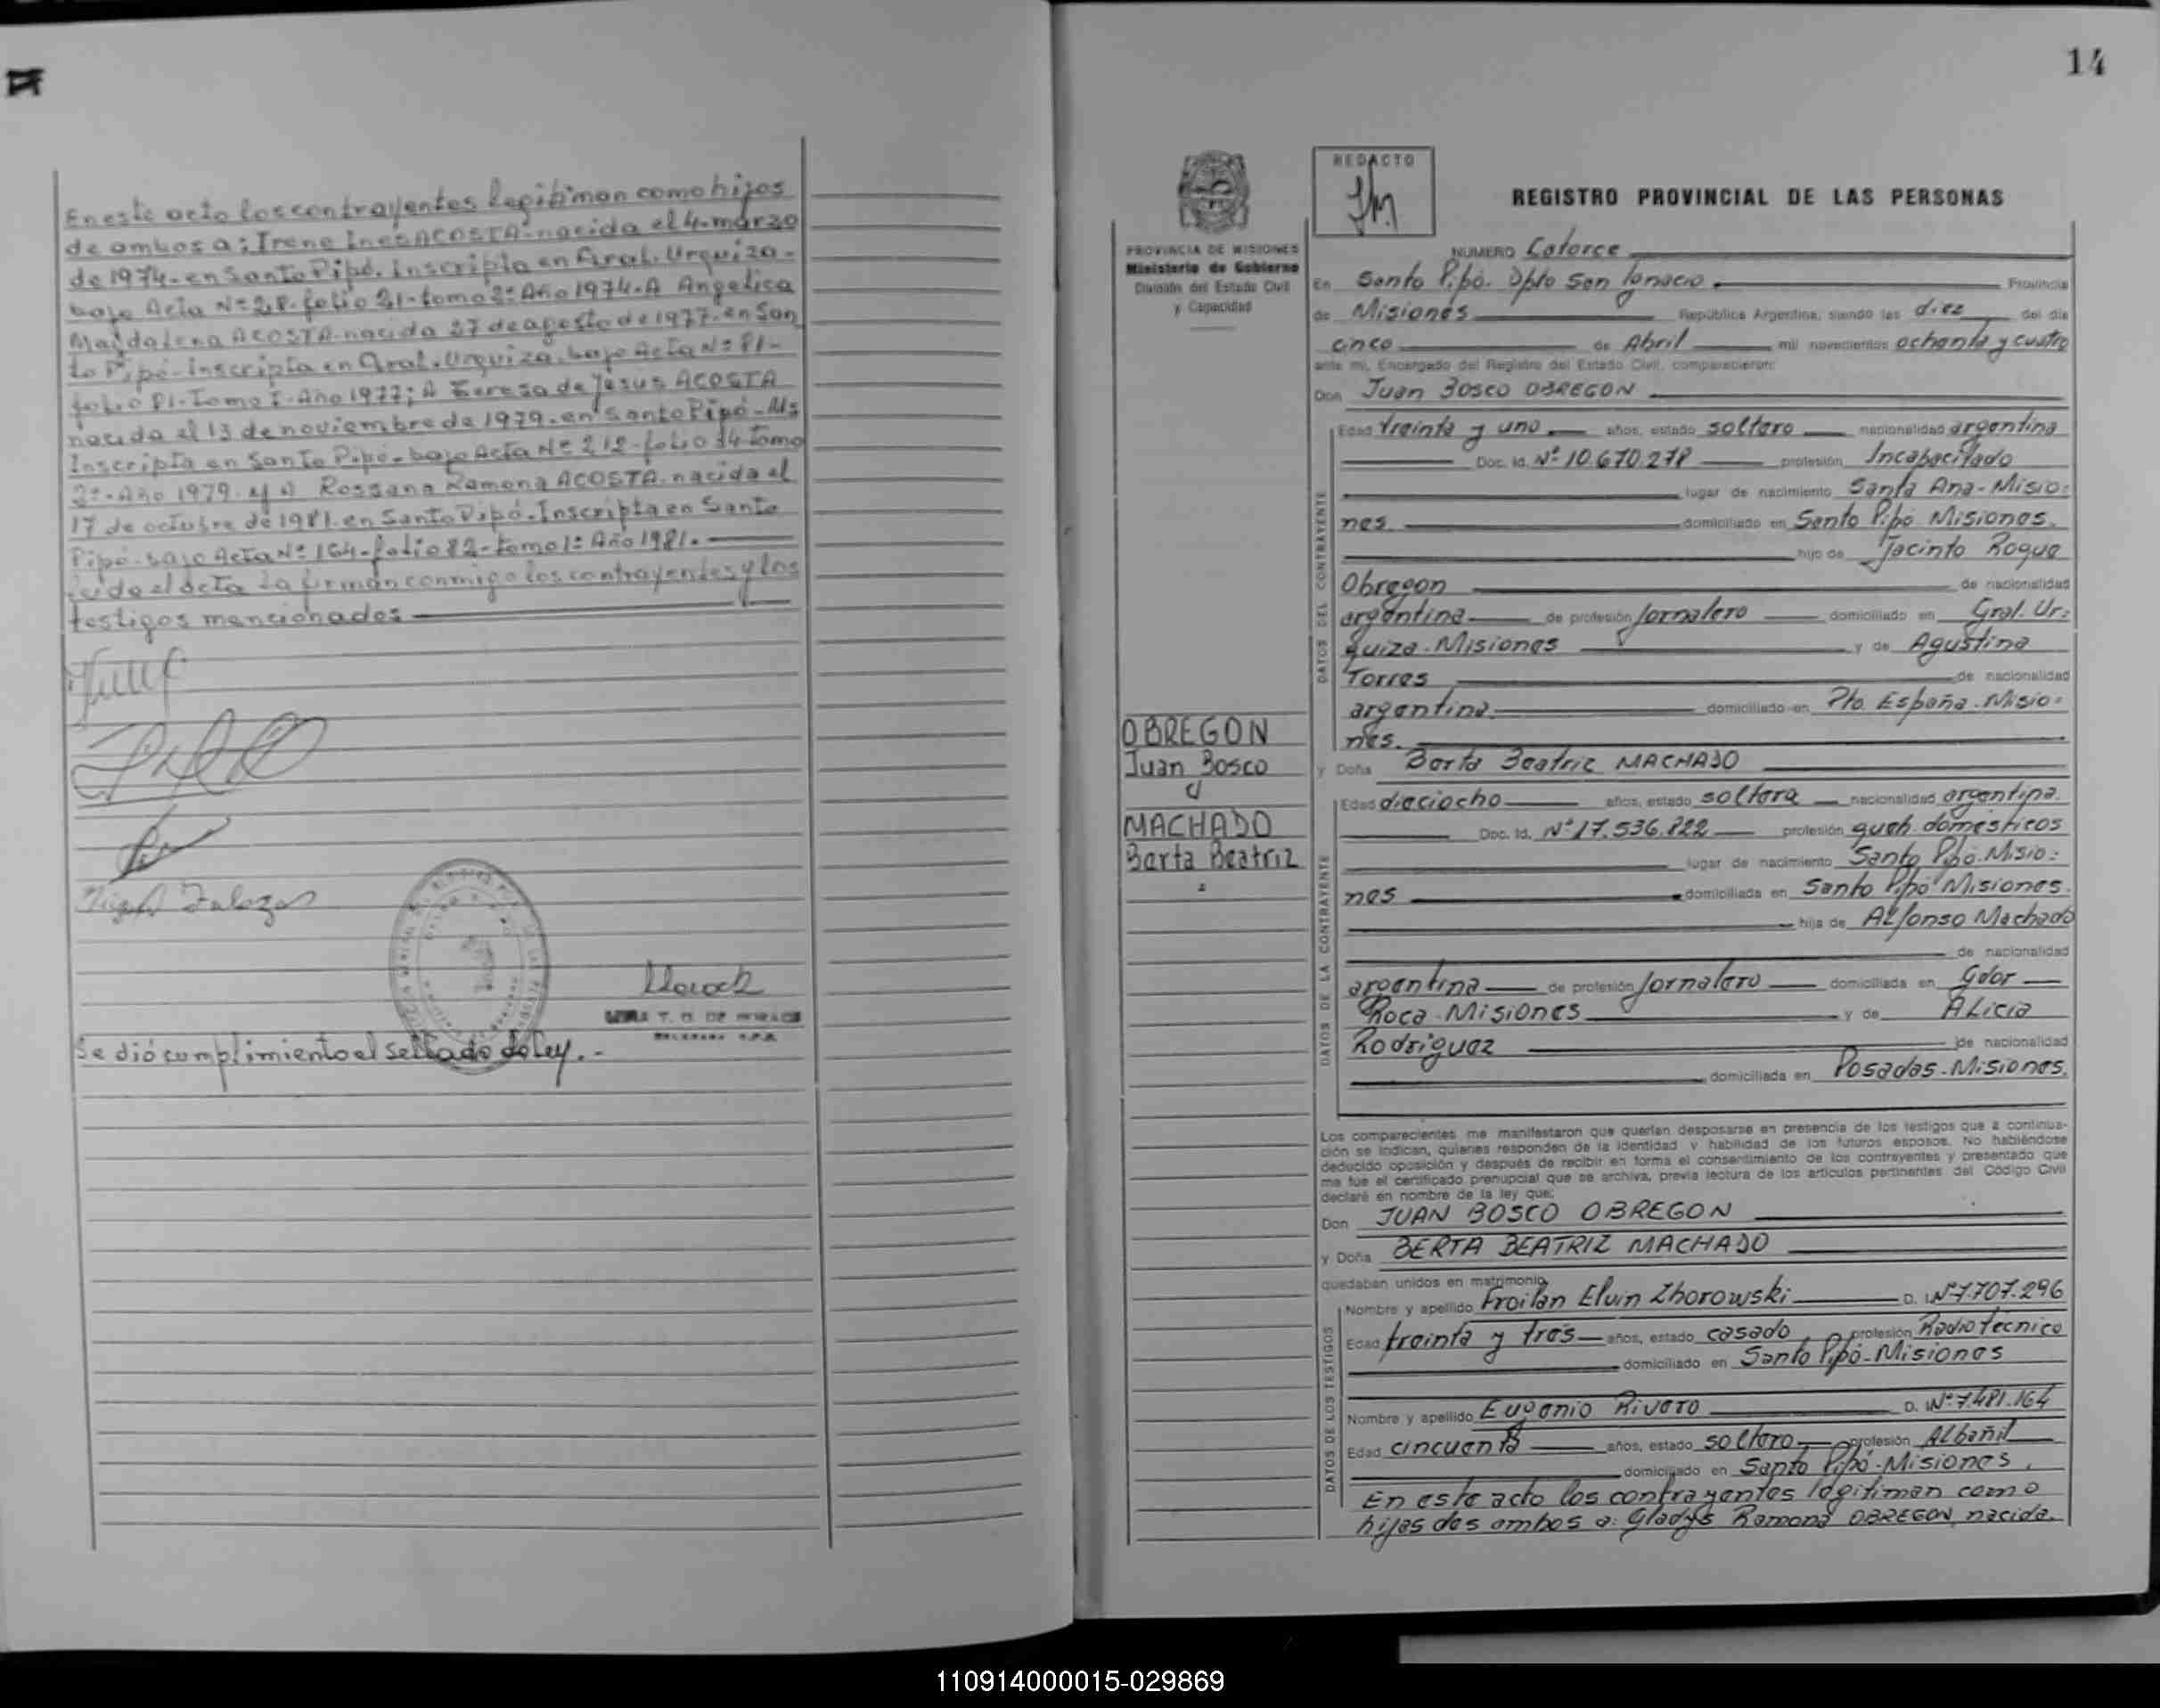 14
En este acto los contrayentes legitiman como hijos
de ambos a: Irene Ines ACOSTA nacida el 4 marzo
de 1974 en Santo Pipó. inscripta en Gral. Urquiza-
bajo Acta Nº 28 folio 21-tomo 2º Año 1974-A Angelica
Magdalena ACOSTA nacida 27 de agosto de 1977 en San
to Pipó-Inscripta en Gral. Urquiza. bajo Acta Nº 81-
folio 81-Tomo I-Año 1977; A Teresa de Jesus ACOSTA
nacida el 13 de noviembre de 1979. en Santo Pipó-Ms
Inscripta en Santo Pipó-bajo Acta Nº 212-folio 14 tomo
2º-Año 1979. y A Rossana Ramona ACOSTA nacida el
17 de octubre de 1981 en Santo Pipó. Inscripta en Santo
Pipó-bajo Acta Nº 164-folio 82-tomo 1º Año 1981.-
Leida el acta la firman conmigo los contrayentes y los
testigos mencionados
Se dió cumplimiento el sellado de ley.-
REDACTO
REGISTRO PROVINCIAL DE LAS PERSONAS
PROVINCIA DE MISIONES
Ministerio de Gobierno
División del Estado Civil
y Capacidad
NUMERO Catorce
En Santo Pipó. Dpto San Ignacio. Provincia
de Misiones República Argentina, siendo las diez del día
cinco de Abril mil novecientos ochenta y cuatro
ante mí, Encargado del Registro del Estado Civil, comparecieron:
Don Juan Bosco OBREGON
DATOS DEL CONTRAYENTE
Edad treinta y uno años, estado soltero nacionalidad argentina
Doc. Id. Nº 10.670.278 profesión Incapacitado
lugar de nacimiento Santa Ana-Misio=
nes domiciliado en Santo Pipó Misiones.
hijo de Jacinto Roque
Obregon de nacionalidad
argentina de profesión Jornalero domiciliado en Gral. Ur=
quiza-Misiones y de Agustina
Torres de nacionalidad
argentina domiciliado en Pto. España-Misio=
nes.
OBREGON
Juan Bosco
c/
MACHADO
Berta Beatriz
y Doña Berta Beatriz MACHADO
DATOS DE LA CONTRAYENTE
Edad dieciocho años, estado soltera nacionalidad argentina.
Doc. Id. Nº 17.536.822 profesión queh. domésticos
lugar de nacimiento Santo Pipó-Misio=
nes domiciliada en Santo Pipó Misiones.
hija de Alfonso Machado
de nacionalidad
argentina de profesión Jornalero domiciliada en Gdor
Roca-Misiones y de Alicia
Rodriguez de nacionalidad
domiciliada en Posadas-Misiones.
Los comparecientes me manifestaron que querían desposarse en presencia de los testigos que a continua-
ción se indican, quienes responden de la identidad y habilidad de los futuros esposos. No habiéndose
deducido oposición y después de recibir en forma el consentimiento de los contrayentes y presentado que
me fue el certificado prenupcial que se archiva, previa lectura de los artículos pertinentes del Código Civil
declaré en nombre de la ley que:
Don JUAN BOSCO OBREGON
y Doña BERTA BEATRIZ MACHADO
quedaban unidos en matrimonio.
DATOS DE LOS TESTIGOS
Nombre y apellido Froilan Elvin Zhorowski D. I. Nº 7.707.296
Edad treinta y tres años, estado casado profesión Radio técnico
domiciliado en Santo Pipó-Misiones
Nombre y apellido Eugenio Rivero D. I. Nº 7.481.164
Edad cincuenta años, estado soltero profesión Albañil
domiciliado en Santo Pipó-Misiones.
En este acto los contrayentes legitiman como
hijas des ambos a: Gladys Ramona OBREGON, nacida.
110914000015-029869